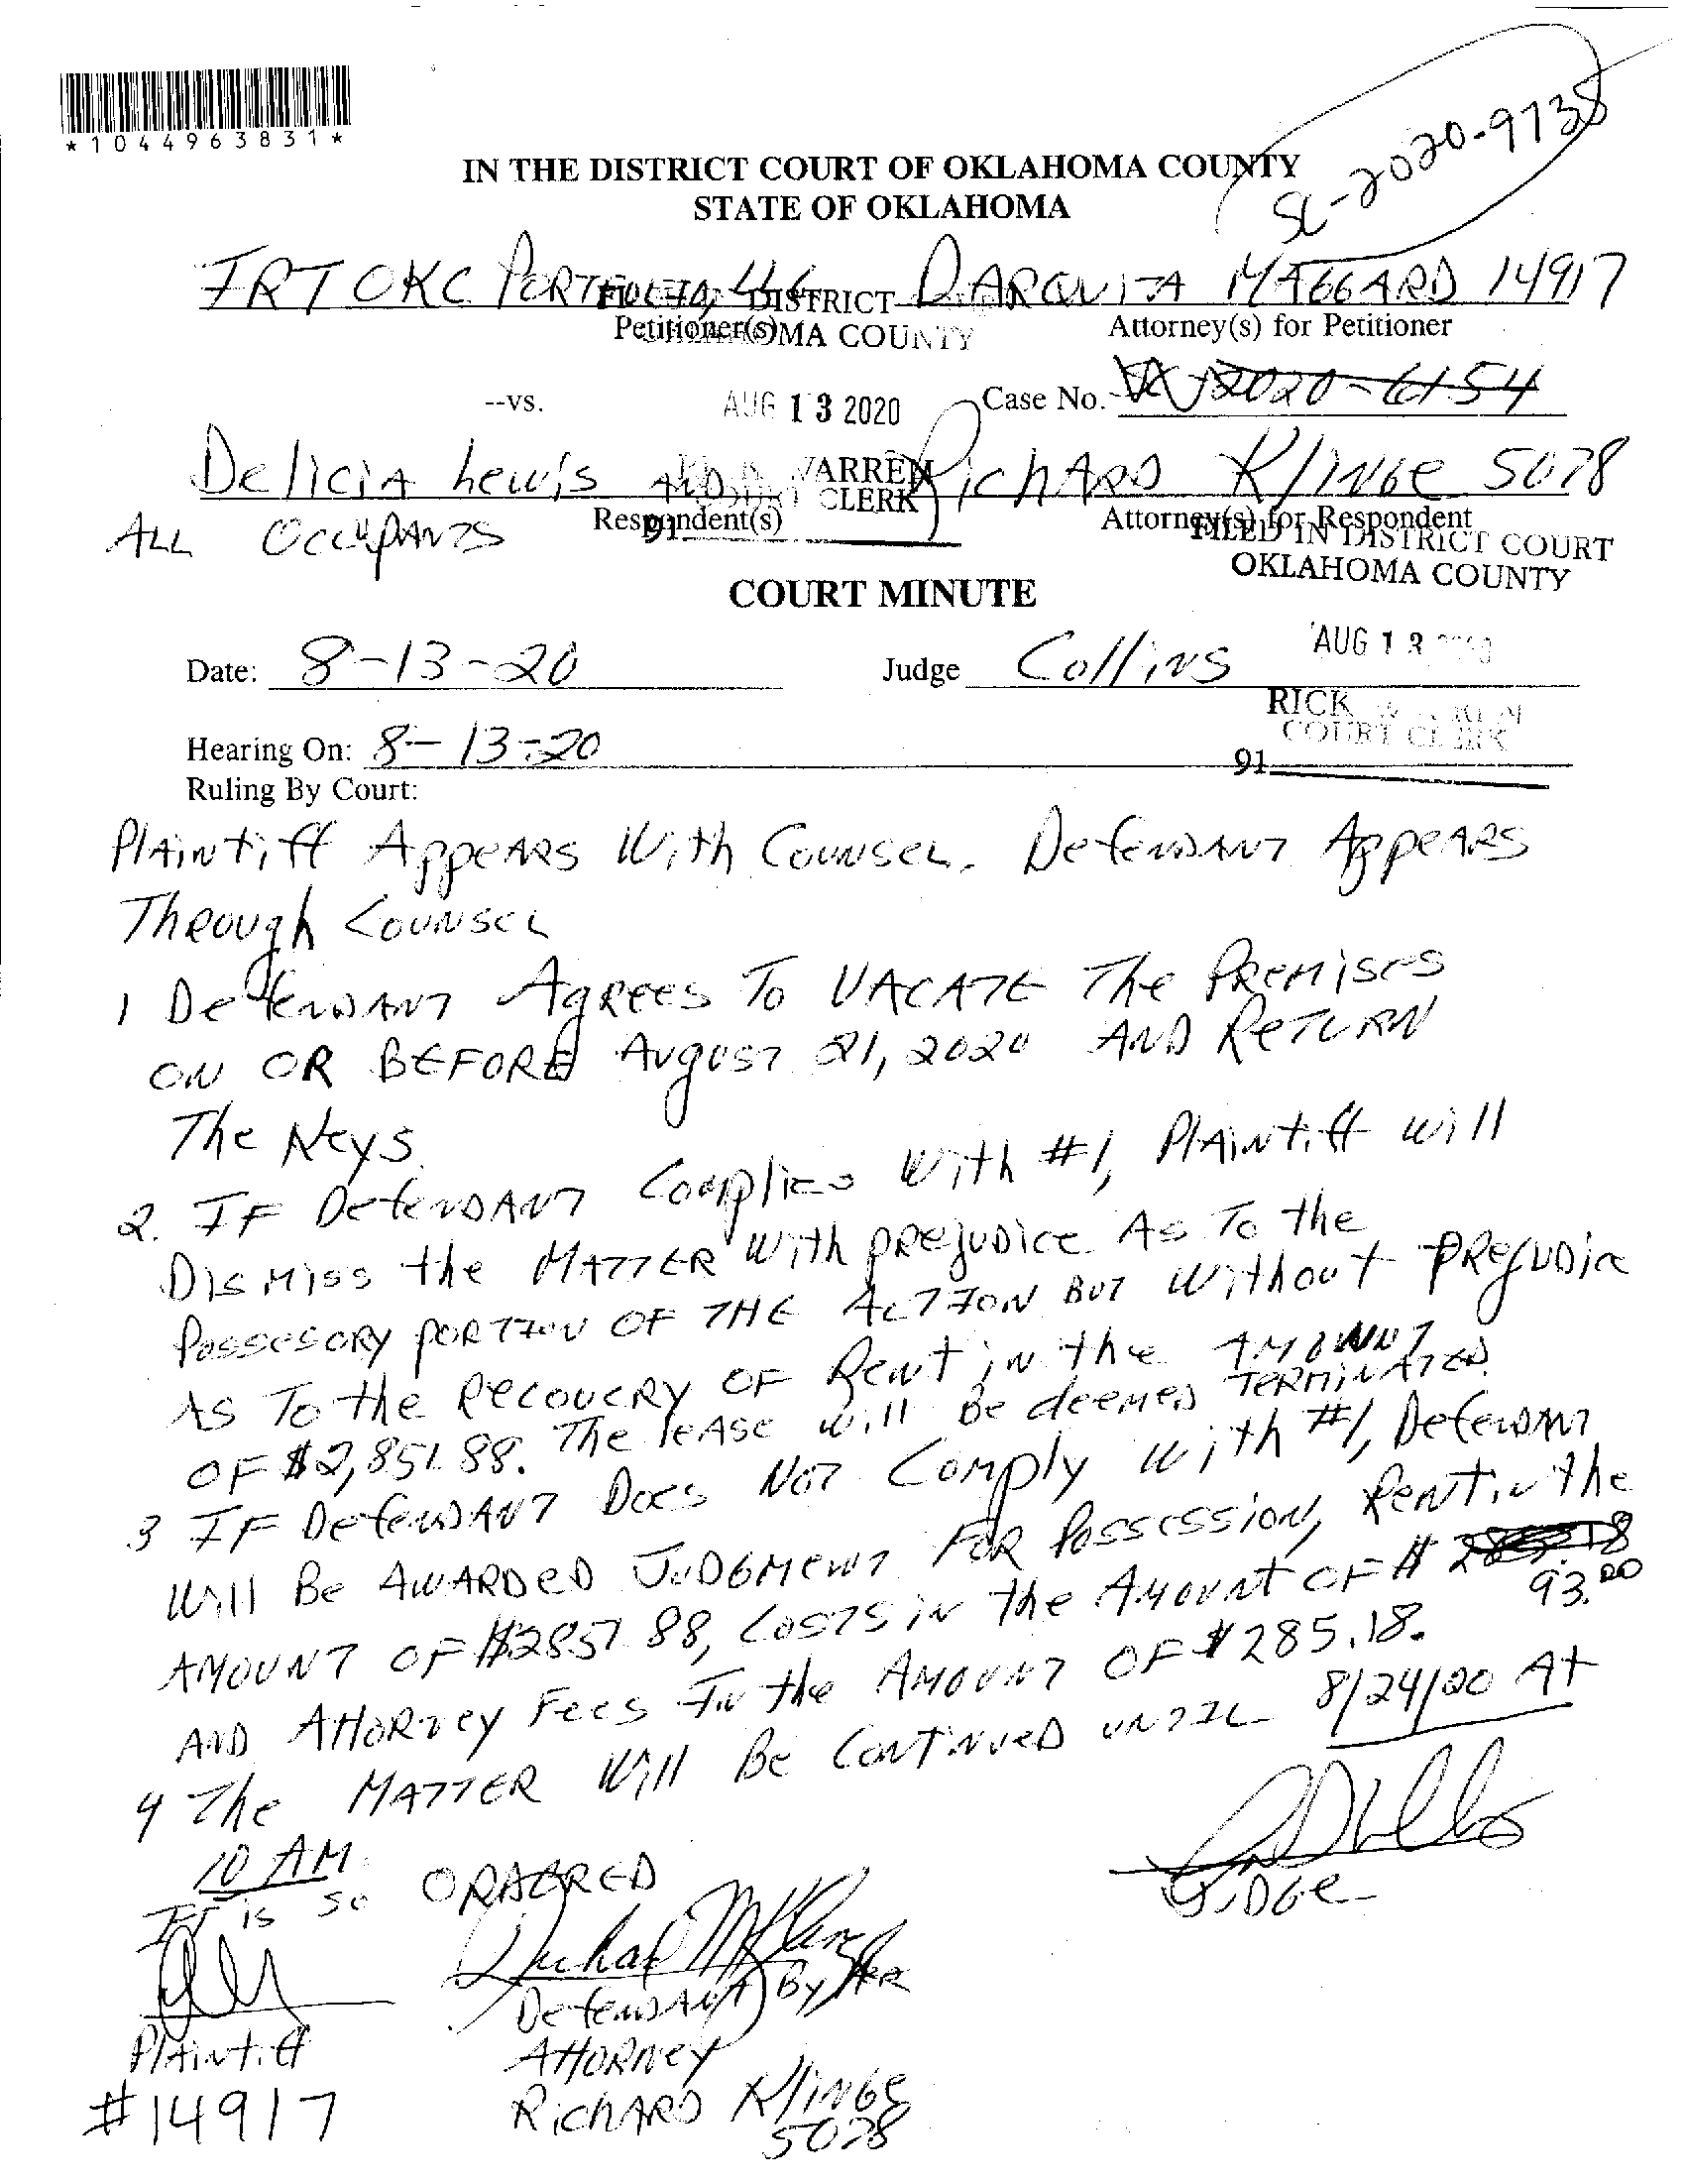 *1044963831*
SC-2020-9738
IN THE DISTRICT COURT OF OKLAHOMA COUNTY
STATE OF OKLAHOMA
IRT OKC PORTFOLIO, LLC DARQUITA MAGGARD 14917
DISTRICT
Petitioner(s) Attorney(s) for Petitioner
OMA COUNTY
--vs. AUG 13 2020 Case No. 2020-6154
Delicia Lewis AND Richard Klinge 5078
WARREN
CLERK
Respondent(s) Attorney(s) for Respondent
ALL OCCUPANTS 91
FILED IN DISTRICT COURT
OKLAHOMA COUNTY
COURT MINUTE
Date: 8-13-20 Judge Collins AUG 13
RICK
COURT CLERK
Hearing On: 8-13-20 91
Ruling By Court:
Plaintiff Appears With Counsel. Defendant Appears
Through Counsel
1 Defendant Agrees To VACATE The Premises
ON OR BEFORE August 21, 2020 AND RETURN
The Keys.
2. IF Defendant Complies With #1, Plaintiff will
Dismiss the MATTER With prejudice As To the
Possesory PORTION OF THE ACTION BUT Without prejudice
As To the Recovery OF Rent in the AMOUNT
OF $2,851.88. The lease will Be deemed TERMINATED.
3 IF Defendant Does Not Comply with #1, Defendant
Will Be AWARDED JUDGMENT FOR Possession, Rent in the
AMOUNT OF $2851.88, Costs in the Amount OF $ 93.00
AND Attorney Fees In the Amount OF $285.18.
4 The MATTER Will Be Continued UNTIL 8/24/20 At
10 AM.
IT is so ORDERED
JUDGE
Plaintiff
#14917
Defendant By Her
Attorney
Richard Klinge
5078